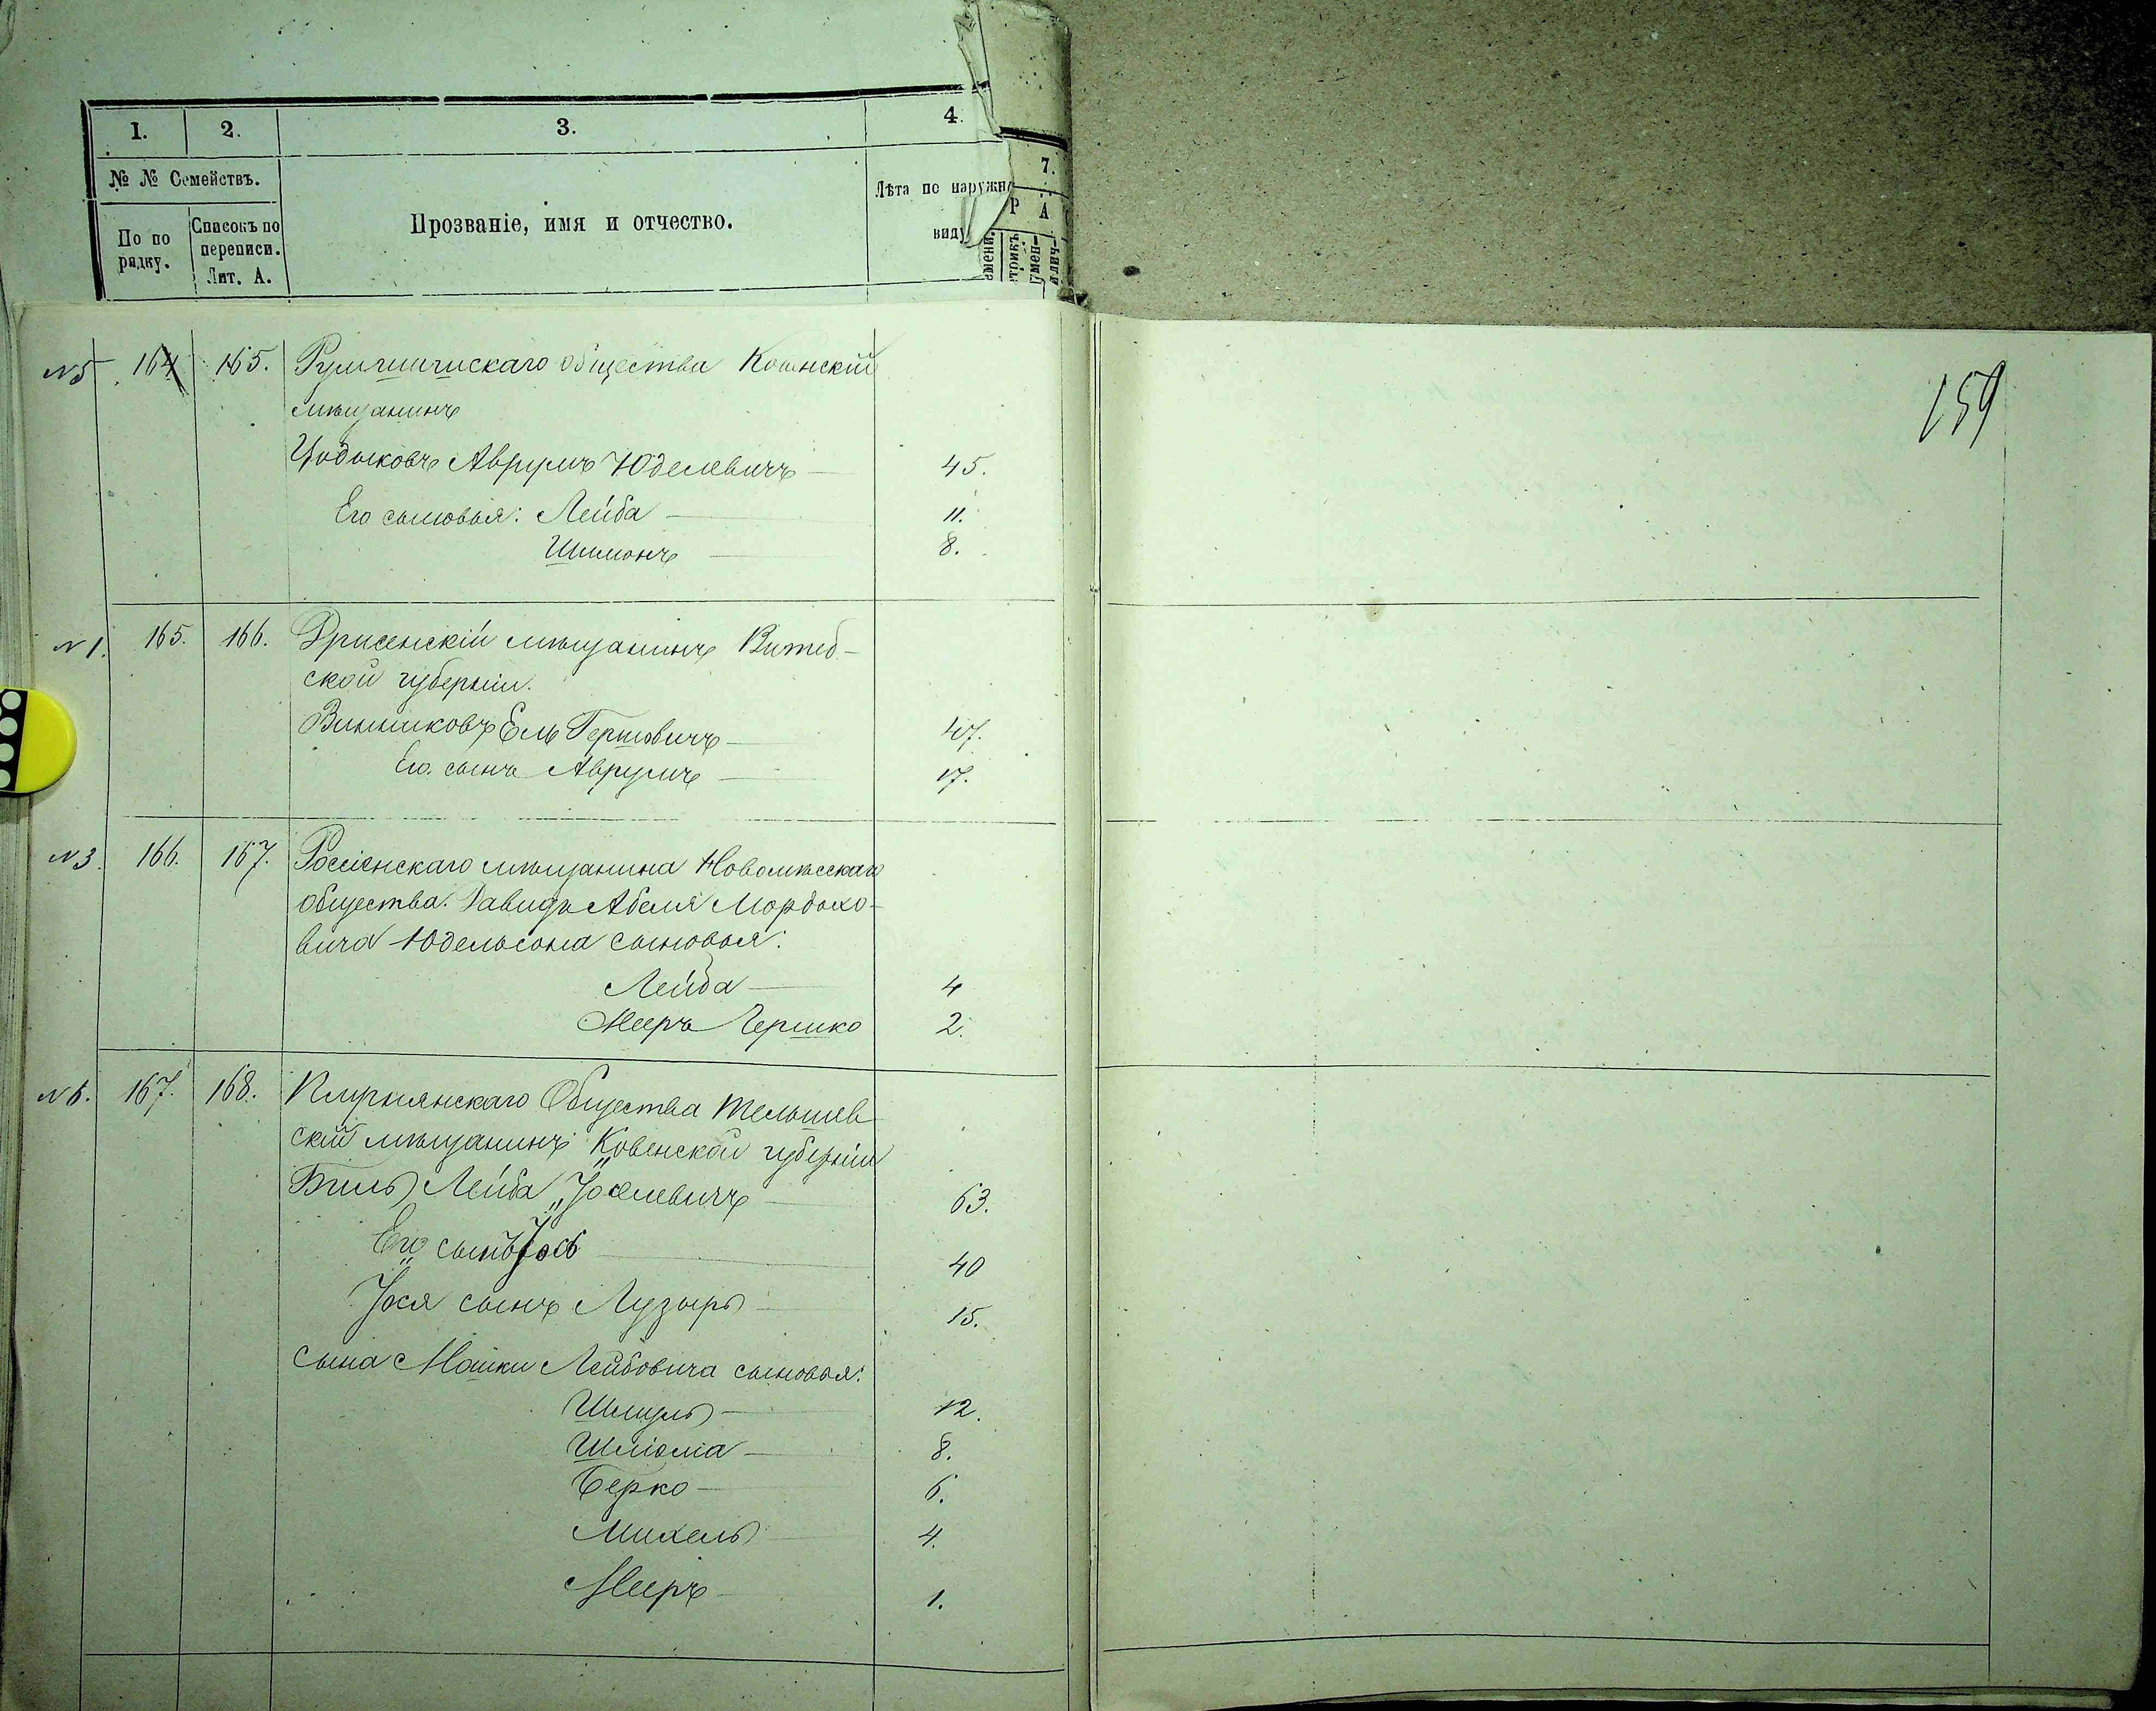 1. 2. 3. 4.
7.
№ № Семействъ.
По по рядку.
Списокъ по переписи. Лит. А.
Прозваніе, имя и отчество.
Лѣта по наружн
виду
Р А
N5 164 165. Румшишискаго общества Ковенскій
мѣщанинъ
Цодыковъ Аврумъ Юделевичъ — 45.
Его сыновья: Лейба — 11.
Шимонъ — 8.
159
N1. 165. 166. Дрисенскій мѣщанинъ Витеб-
ской губерніи.
Винниковъ Ель Гершовичъ — 47.
Его сынъ Аврумъ — 17.
N3. 166. 167. Россіенскаго мѣщанина Новомѣсскаго
общества. Давидъ Абеля Мордхо-
вича Юдельсона сыновья:
Лейба — 4
Мееръ Гершко 2.
N6. 167. 168. Общества Тельшев
скій мѣщанинъ Ковенской губерніи
Лейба Іоселевичъ — 63.
Его сынъ Іось — 40
Іося сынъ Лузыръ — 15.
Сына Мошки Лейбовича сыновья:
Шмуль — 12.
Шліома — 8.
Берко — 6.
Михель — 4.
Мееръ — 1.